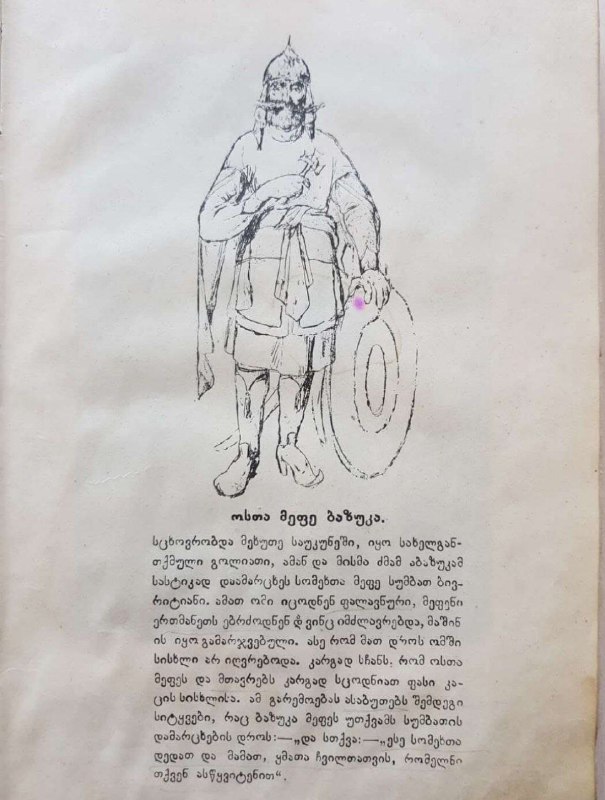 ოსთა მეფე ბაზუკა.
სცხოვრობდა მეხუთე საუკუნეში, იყო სახელგან-
თქმული გოლიათი, ამან და მისმა ძმამ აბაზუკამ
სასტიკად დაამარცხეს სომეხთა მეფე სუმბათ ბივ-
რიტიანი. ამათ ომი იცოდნენ ფალავნური, მეფენი
ერთმანეთს ებრძოდნენ და ვინც იმძლავრებდა, მაშინ
ის იყო გამარჯვებული. ასე რომ მათ დროს ომში
სისხლი არ იღვრებოდა. კარგად სჩანს. რომ ოსთა
მეფეს და მთავრებს კარგად სცოდნიათ ფასი კა-
ცის სისხლისა. ამ გარემოებას ასაბუთებს შემდეგი
სიტყვები, რაც ბაზუკა მეფეს უთქვამს სუმბათის
დამარცხების დროს:—„და სთქვა:—„ესე სომეხთა
დედათ და მამათ, ყმათა ჩვილთათვის, რომელნი
თქვენ ასწყვიტენით“.